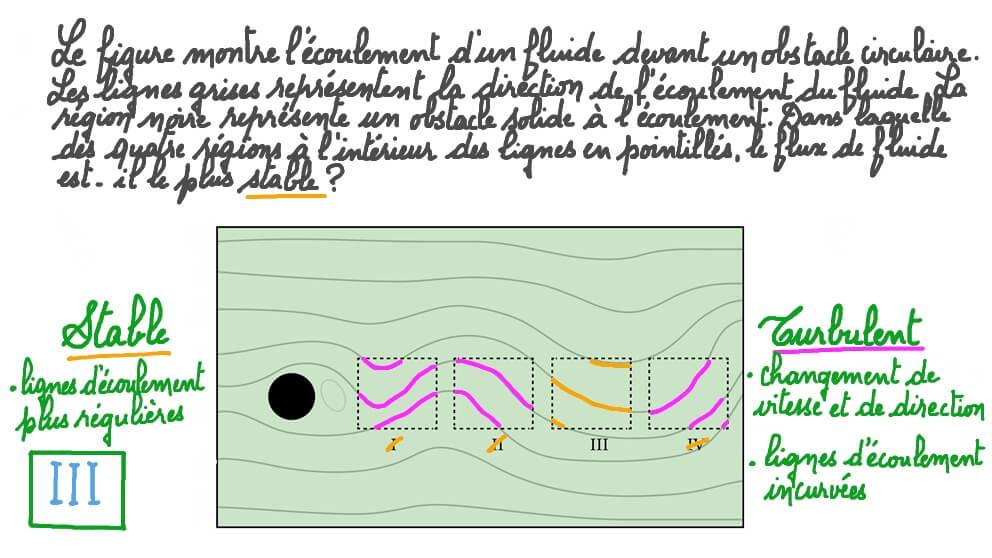 Le figure montre l'écoulement d'un fluide devant un obstacle circulaire.
Les lignes grises représentent la direction de l'écoulement du fluide. La
région noire représente un obstacle solide à l'écoulement. Dans laquelle
des quatre régions à l'intérieur des lignes en pointillés, le flux de fluide
est-il le plus stable ?
Stable
• lignes d'écoulement
plus régulières
III
I II III IV
Turbulent
• changement de
vitesse et de direction
• lignes d'écoulement
incurvées